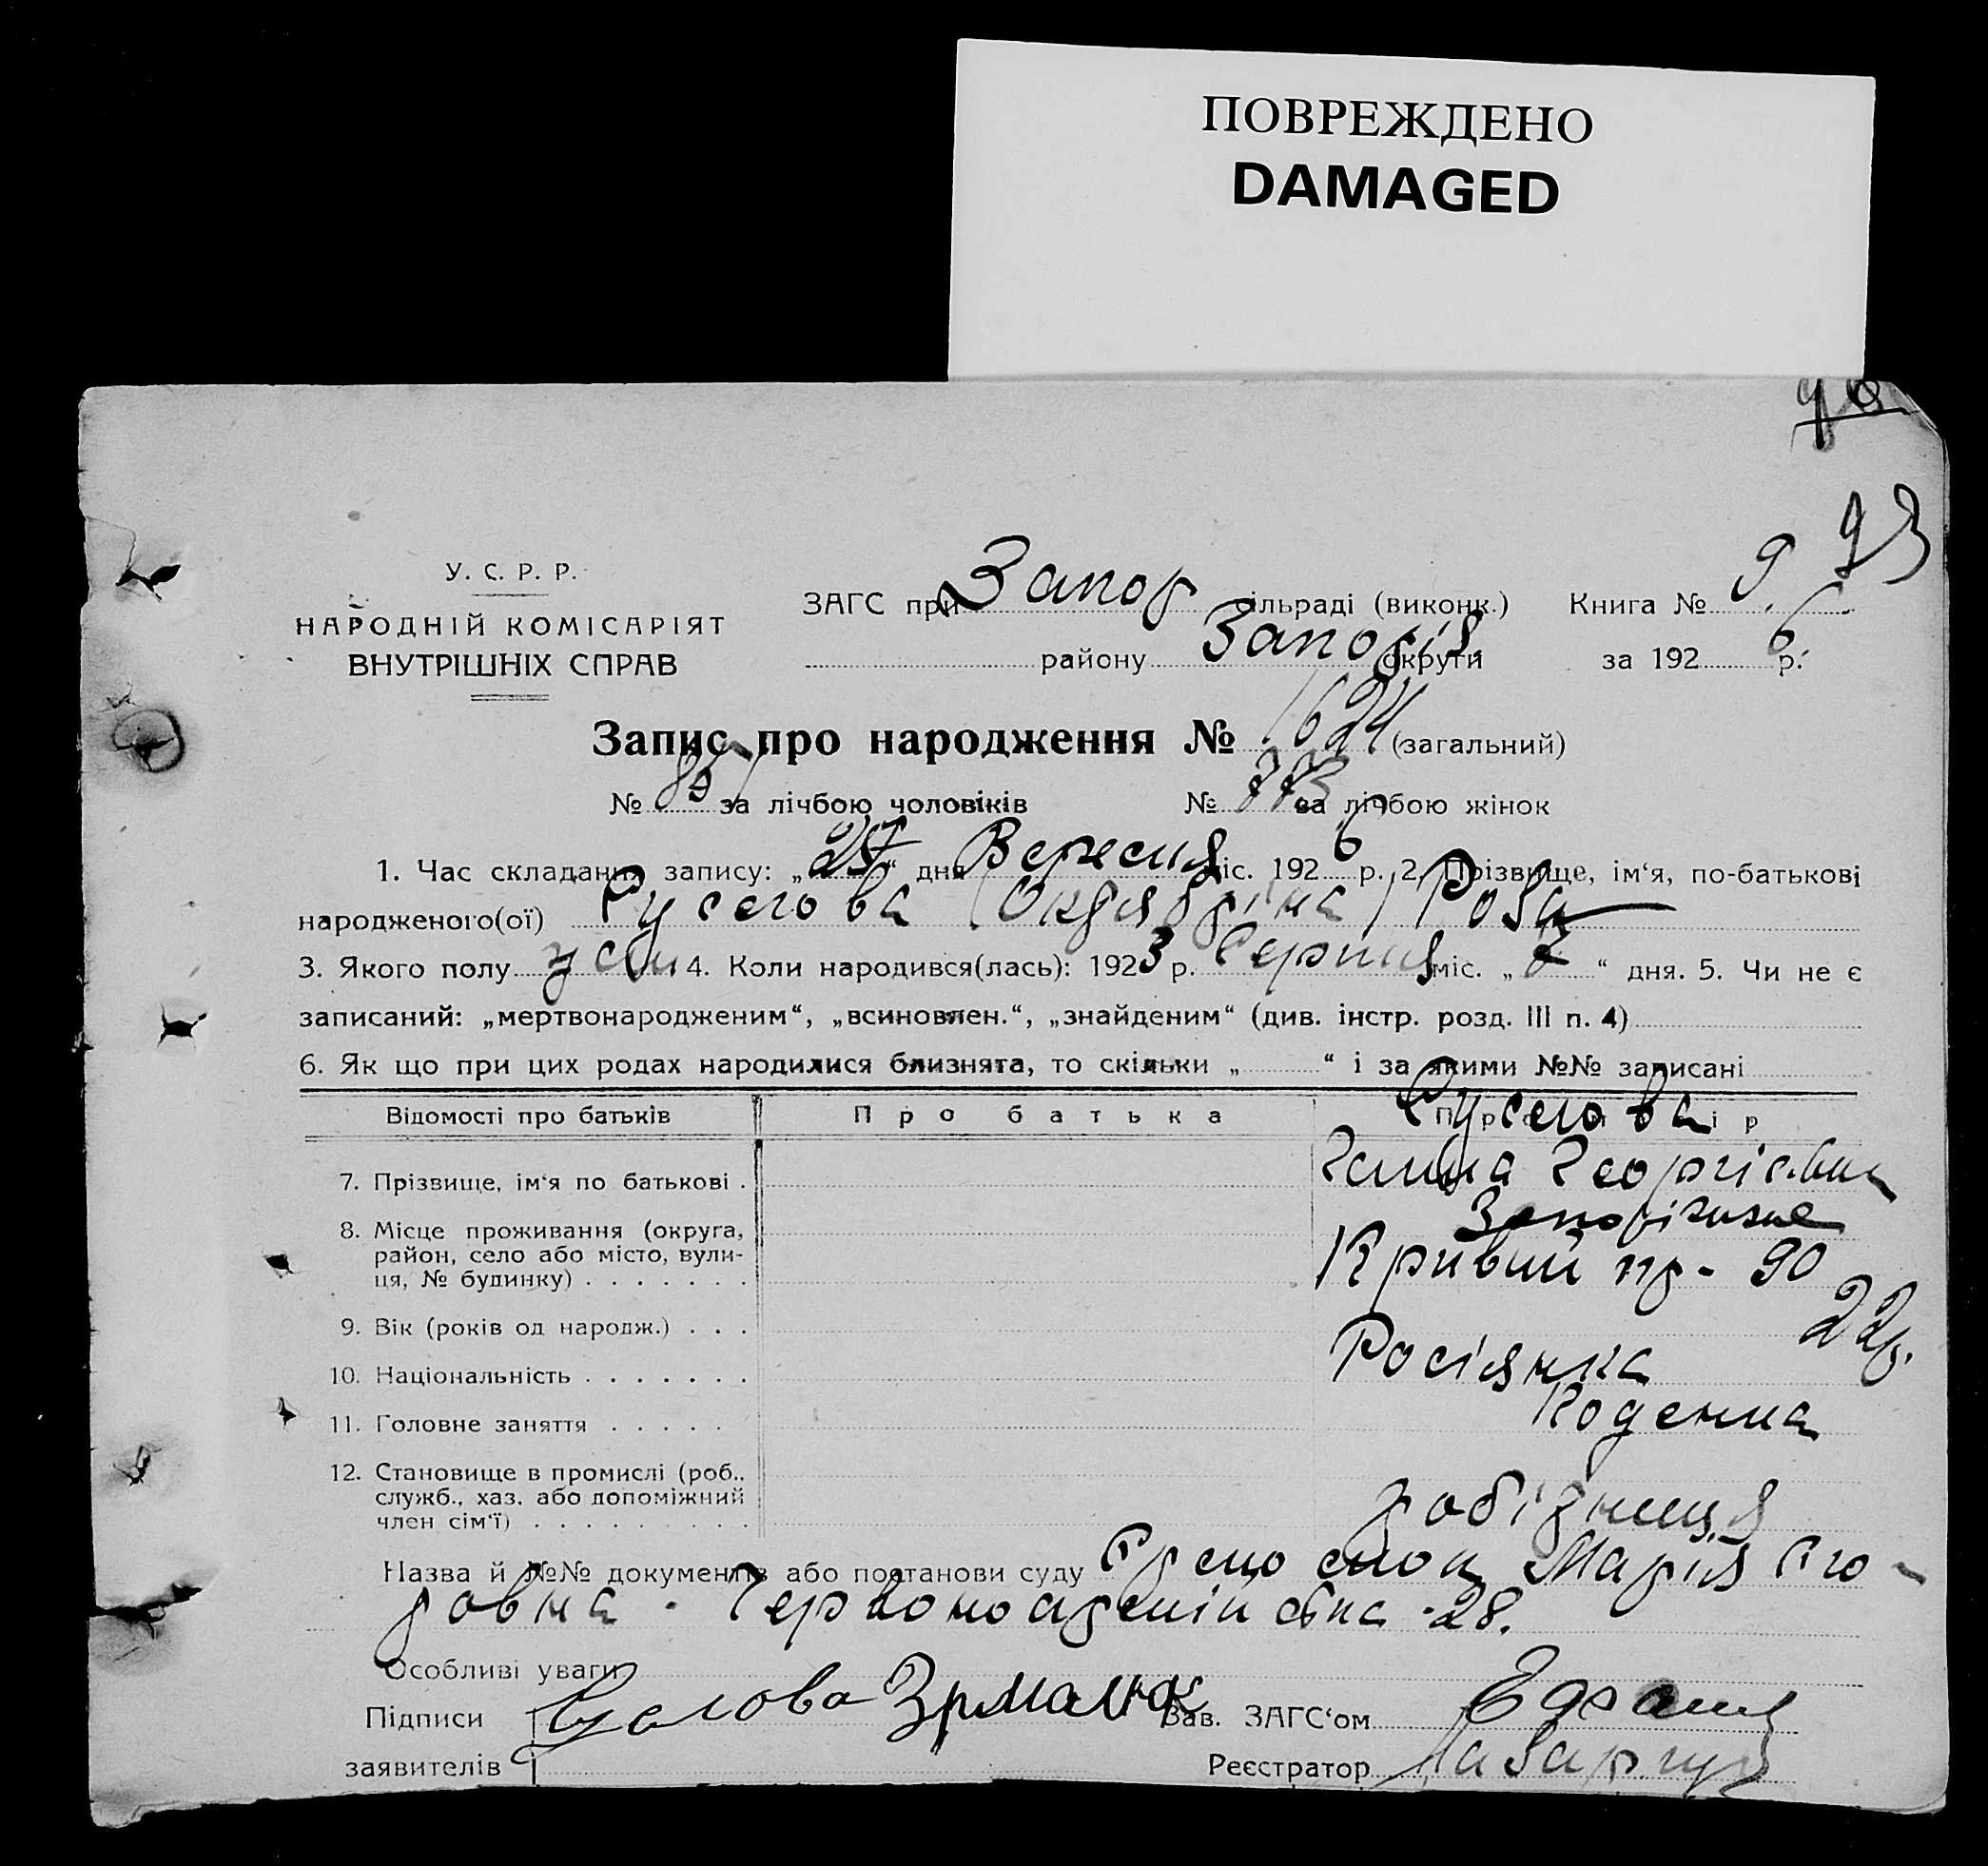 ПОВРЕЖДЕНО
DAMAGED
93
У. С. Р. Р.
НАРОДНІЙ КОМІСАРІЯТ
ВНУТРІШНІХ СПРАВ
ЗАГС при Запор ільраді (виконк.) Книга № 9
району Запоріз. округи за 1926 р.
Запис про народження № 1624 (загальний)
№ 851 за лічбою чоловіків № 773 за лічбою жінок
1. Час складання запису: „27“ дня Вересня міс. 1926 р. 2. Прізвище, ім‘я, по-батькові
народженого(ої) (Октябріна) Роза
3. Якого полу 4. Коли народився(лась): 1923 р. Серпня міс. „ “ дня. 5. Чи не є
записаний: „мертвонародженим“, „всиновлен.“, „знайденим“ (див. інстр. розд. III п. 4)
6. Як що при цих родах народилися близнята, то скільки „ “ і за якими №№ записані
Відомості про батьків Про батька
7. Прізвище, ім‘я по батькові . Галина Георгієвна
8. Місце проживання (округа,
район, село або місто, вули-
ця, № будинку) . . . . . . . Кривий пр- 90
9. Вік (років од народж.) . . . 22р.
10. Національність . . . . . . . Росіянка
11. Головне заняття . . . . . Поденна
12. Становище в промислі (роб.,
служб., хаз. або допоміжний
член сім‘ї) . . . . . . . . . робітниця
Назва й №№ документів або постанови суду Марія Его-
ровна - 28.
Особливі уваги
Підписи Зав. ЗАГС‘ом
заявителів Реєстратор